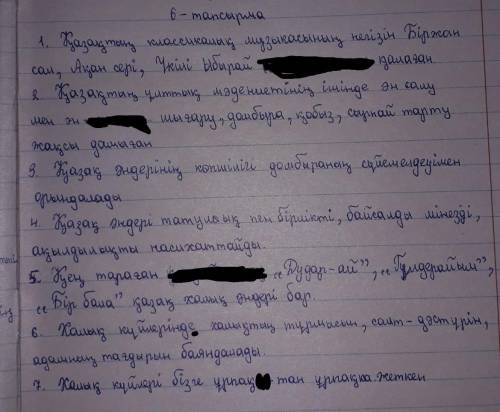 6 - тапсырма
1. Қазақтың классикалық музыкасының негізін Біржан
сал, Ақан сері, Үкілі Ыбырай қалаған
2 Қазақтың ұлттық мәдениетінің ішінде ән салу
мен ән шығару, домбыра, қобыз, сырнай тарту
жақсы дамыған
3. Қазақ әндерінің көпшілігі домбыраның сүйемелдеуімен
орындалады
4. Қазақ әндері татулық пен бірлікті, байсалды мінезді,
ақылдылықты насихаттайды.
5. Кең тараған „Дудар-ай”, „Гүлдерайым”,
„Бір бала” қазақ халық әндері бар.
6. Халық күйлерінде халықтың тұрмысын, салт-дәстүрін,
адамның тағдырын баяндалады.
7. Халық күйлері бізге ұрпақ тан ұрпаққа жеткен